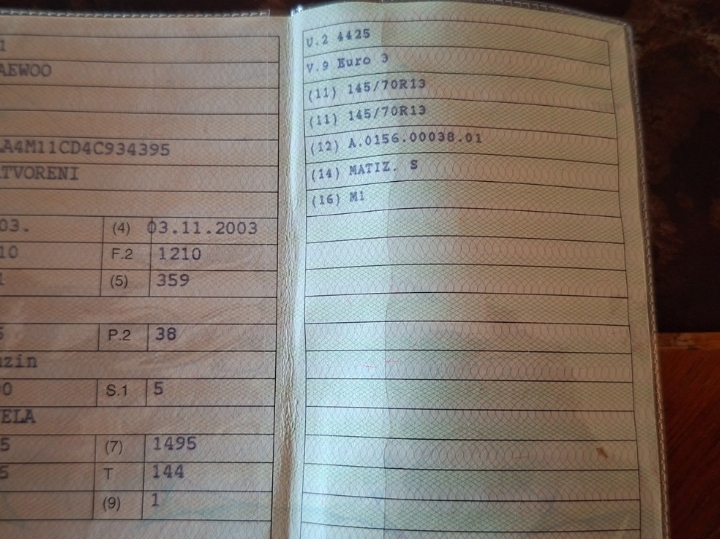 1
AEWOO
LA4M11CD4C934395
ATVORENI
03. (4) 03.11.2003
10 F.2 1210
1 (5) 359
5 P.2 38
nzin
00 S.1 5
ELA
5 (7) 1495
5 T 144
(9) 1
U.2 4425
V.9 Euro 3
(11) 145/70R13
(11) 145/70R13
(12) A.0156.00038.01
(14) MATIZ. S
(16) M1